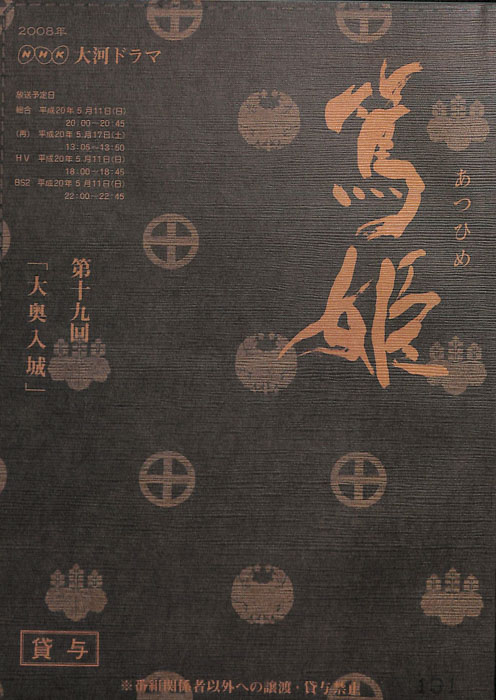 2008年
NHK 大河ドラマ
放送予定日
総合 平成20年5月11日(日)
20:00〜20:45
(再) 平成20年5月17日(土)
13:05〜13:50
HV 平成20年5月11日(日)
18:00〜18:45
BS2 平成20年5月11日(日)
22:00〜22:45
篤姫
あつひめ
第十九回
「大奥入城」
貸与
※番組関係者以外への譲渡・貸与禁止
191